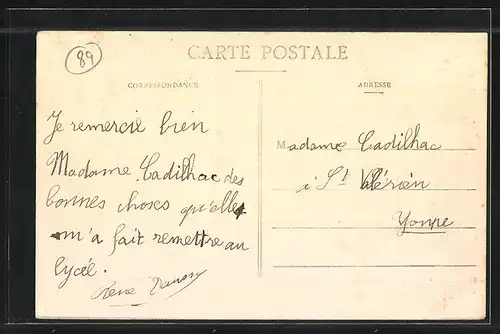 89
CARTE POSTALE
CORRESPONDANCE
ADRESSE
Je remercie bien
Madame Cadilhac des
bonnes choses qu'elle
m'a fait remettre au
lycée.
René
Madame Cadilhac
à St Valérien
Yonne